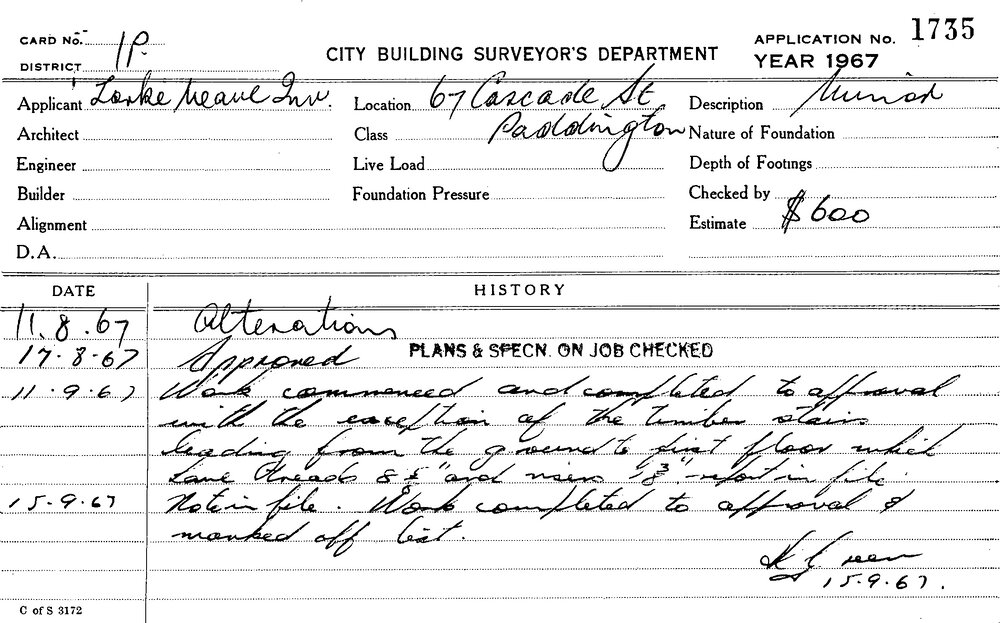 CARD No. 1P.
DISTRICT
CITY BUILDING SURVEYOR'S DEPARTMENT
APPLICATION No. 1735
YEAR 1967
Applicant Inv. Location 67 Cascade St Description Minor
Architect Class Paddington Nature of Foundation
Engineer Live Load Depth of Footings
Builder Foundation Pressure Checked by
Alignment Estimate $600
D.A.
DATE HISTORY
11.8.67 Alterations
17.8.67 Approved PLANS & SPECN. ON JOB CHECKED
11.9.67 Work commenced and completed to approval
with the exception of the timber stairs
leading from the ground to first floor which
have threads and risers report in file
15.9.67 Note in file. Work completed to approval &
marked off list.
15.9.67.
C of S 3172